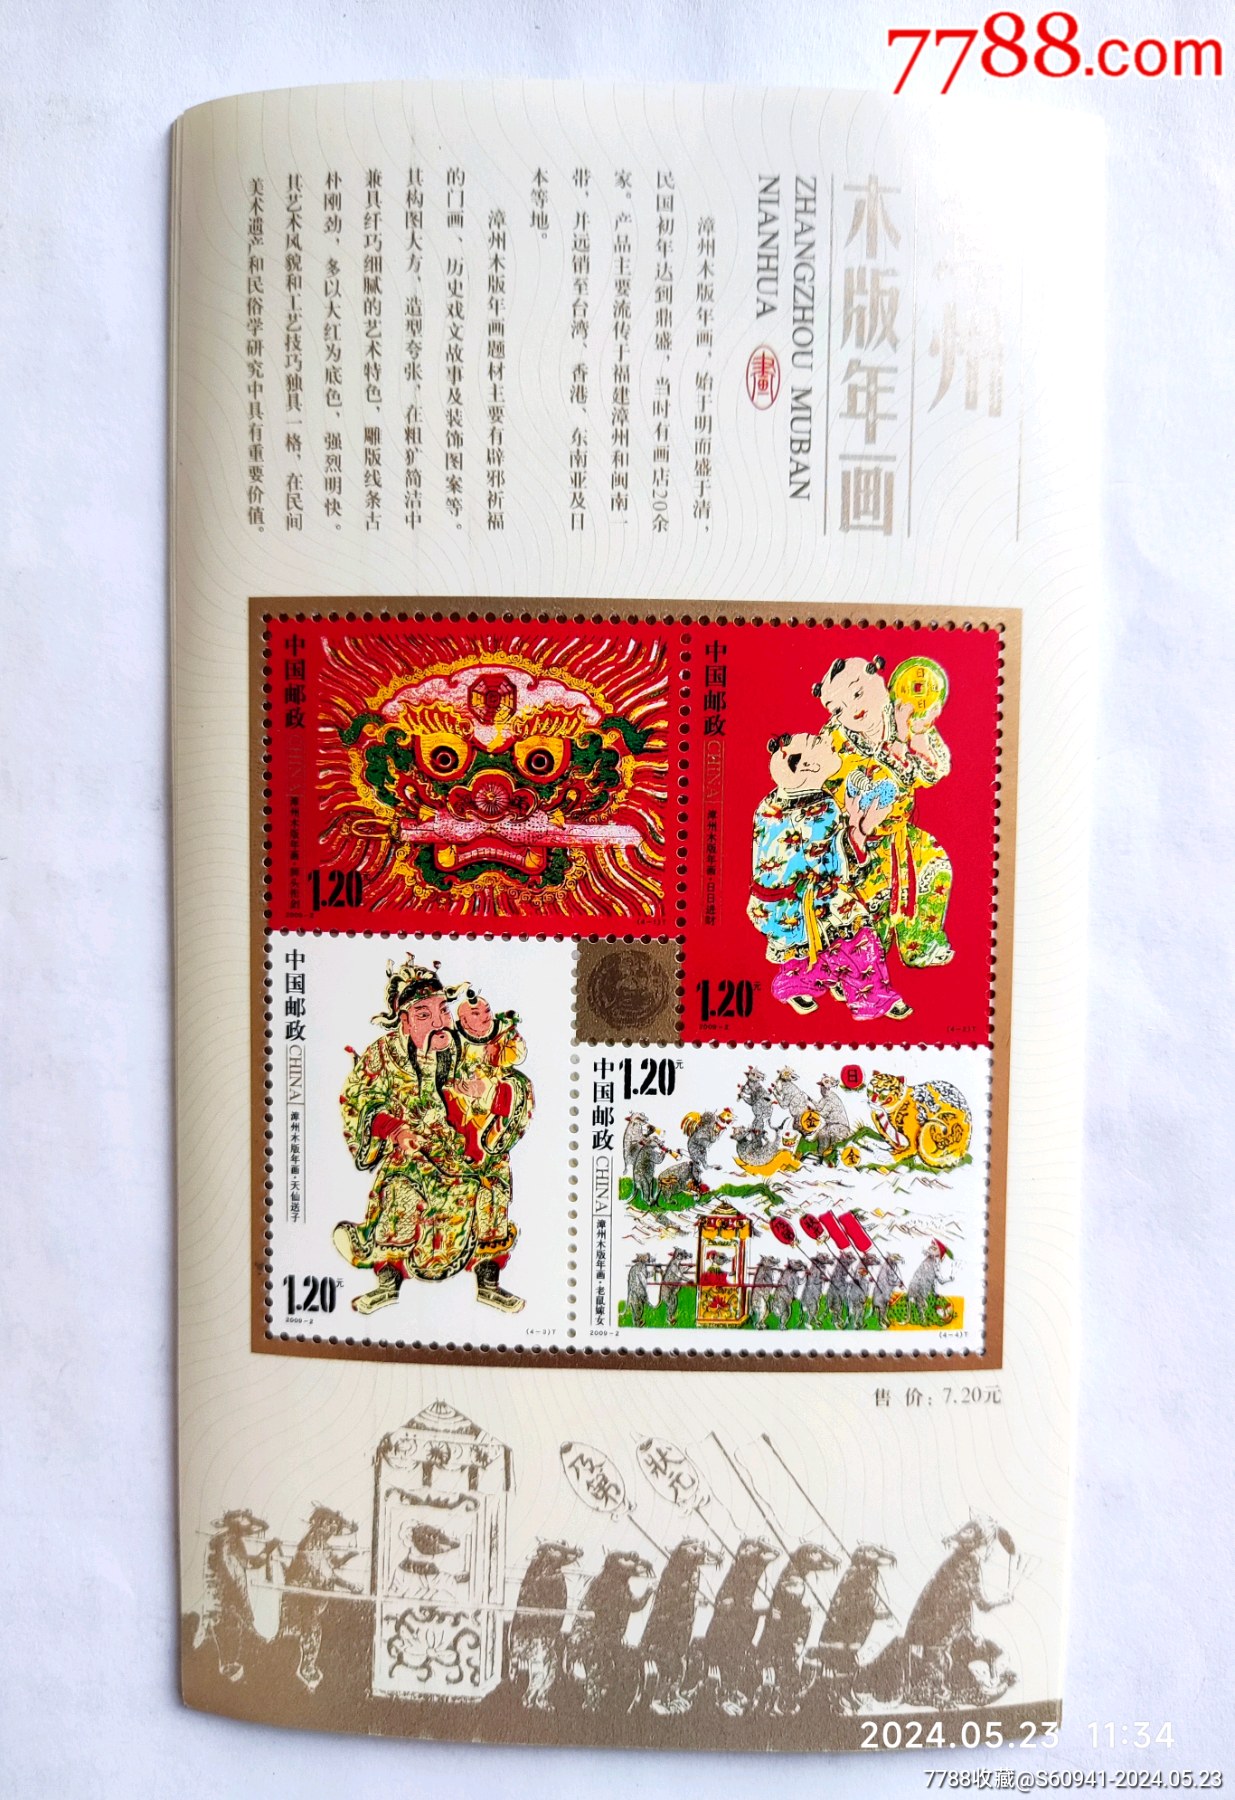 7788.com
州
木版年画
ZHANGZHOU MUBAN
NIANHUA
漳州木版年画，始于明而盛于清，
民国初年达到鼎盛，当时有画店20余
家。产品主要流传于福建漳州和闽南一
带，并远销至台湾、香港、东南亚及日
本等地。
漳州木版年画题材主要有辟邪祈福
的门画、历史戏文故事及装饰图案等。
其构图大方，造型夸张，在粗犷简洁中
兼具纤巧细腻的艺术特色，雕版线条古
朴刚劲，多以大红为底色，强烈明快。
其艺术风貌和工艺技巧独具一格，在民间
美术遗产和民俗学研究中具有重要价值。
中国邮政 CHINA
漳州木版年画·狮头衔剑
1.20元
2009-2
(4-1)T
中国邮政 CHINA
漳州木版年画·日日进财
1.20元
2009-2
(4-2)T
中国邮政 CHINA
漳州木版年画·天仙送子
1.20元
2009-2
(4-3)T
中国邮政 CHINA
1.20元
漳州木版年画·老鼠嫁女
2009-2
(4-4)T
日
金
金
售 价：7.20元
及第
状元
2024.05.23 11:34
7788收藏@S60941-2024.05.23